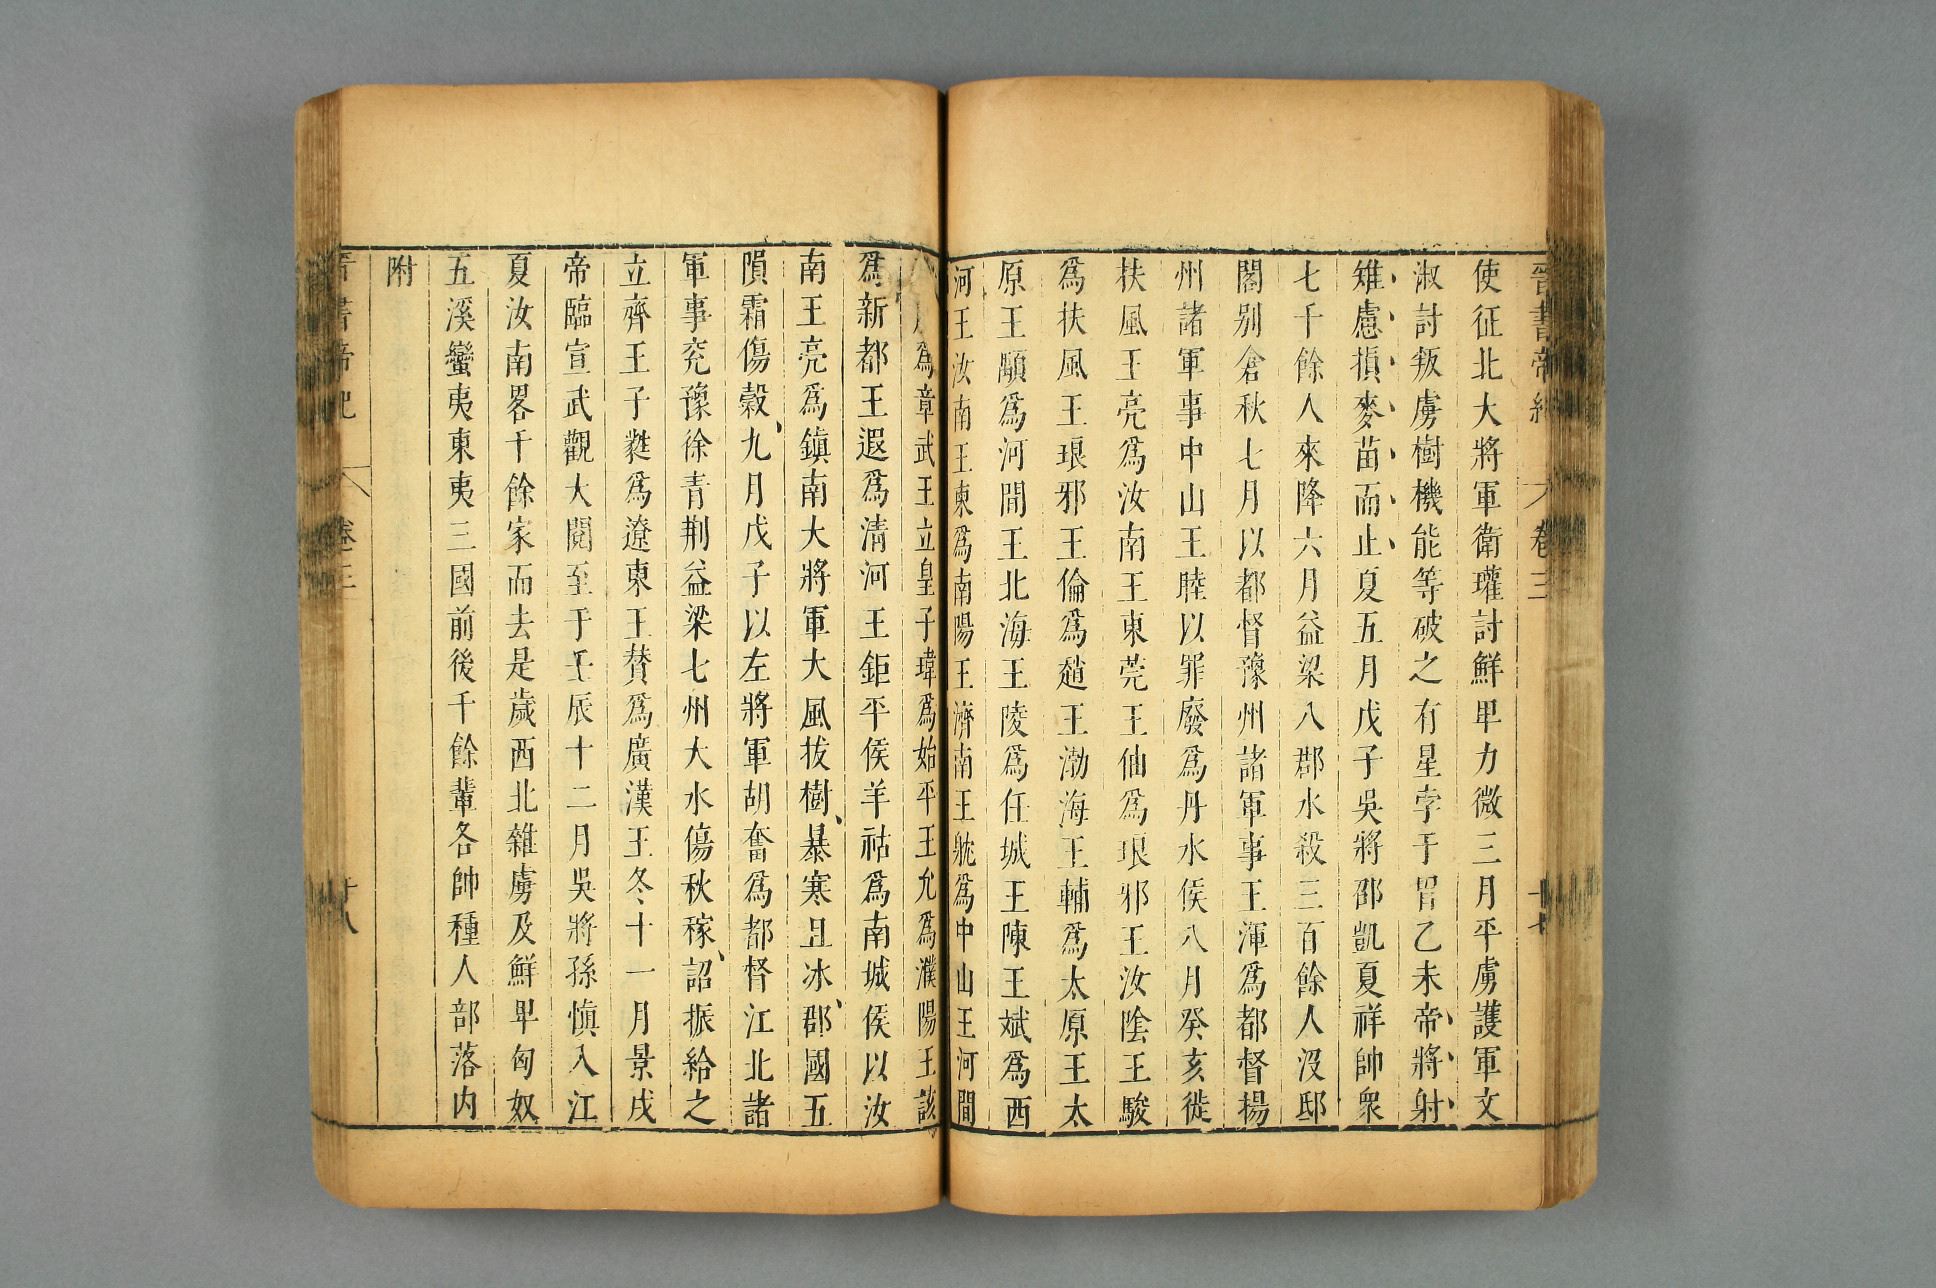 晉書帝紀 卷三 十七
使征北大將軍衛瓘討鮮卑力微三月平虜護軍文
淑討叛虜樹機能等破之有星孛于胃乙未帝將射
雉慮損麥苗而止夏五月戊子吳將邵凱夏祥帥衆
七千餘人來降六月益梁八郡水殺三百餘人沒邸
閣别倉秋七月以都督豫州諸軍事王渾爲都督揚
州諸軍事中山王睦以罪廢爲丹水侯八月癸亥徙
扶風王亮爲汝南王東莞王伷爲琅邪王汝陰王駿
爲扶風王琅邪王倫爲趙王渤海王輔爲太原王太
原王顒爲河間王北海王陵爲任城王陳王斌爲西
河王汝南王柬爲南陽王濟南王耽爲中山王河間
爲章武王立皇子瑋爲始平王允爲濮陽王該
爲新都王遐爲清河王鉅平侯羊祜爲南城侯以汝
南王亮爲鎮南大將軍大風拔樹暴寒且冰郡國五
隕霜傷穀九月戊子以左將軍胡奮爲都督江北諸
軍事兖豫徐青荆益梁七州大水傷秋稼詔振給之
立齊王子蕤爲遼東王贊爲廣漢王冬十一月景戌
帝臨宣武觀大閱至于壬辰十二月吳將孫慎入江
夏汝南畧千餘家而去是歲西北雜虜及鮮卑匈奴
五溪蠻夷東夷三國前後千餘輩各帥種人部落内
附
晉書帝紀 卷三 十八